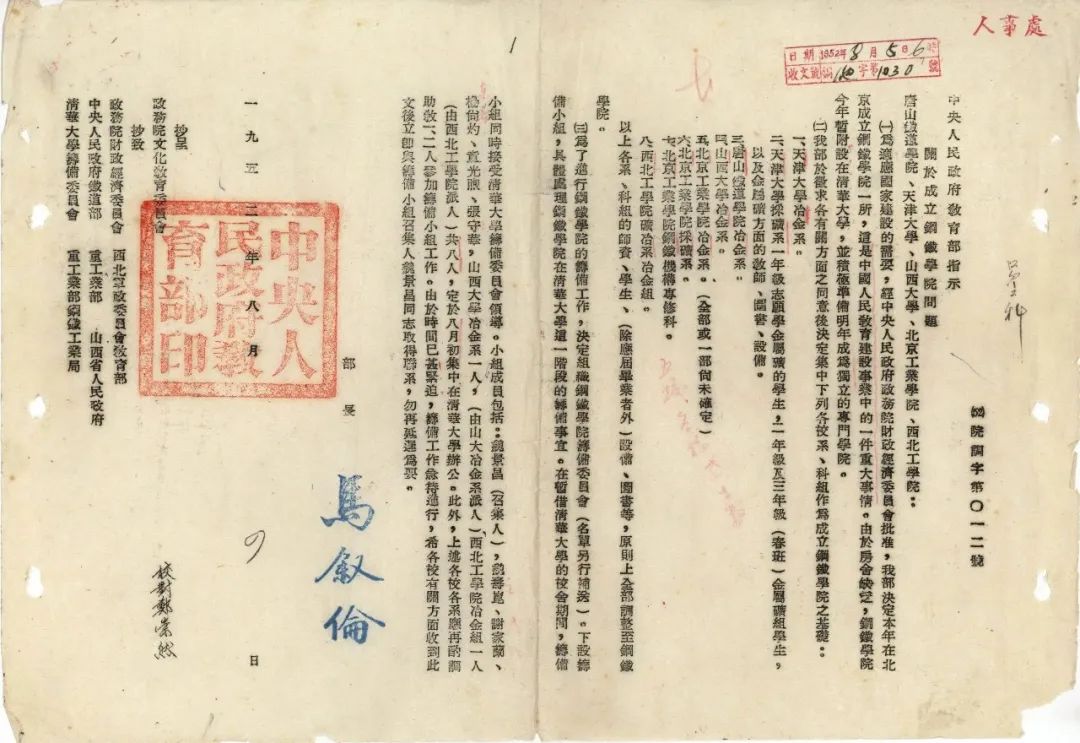 人事處
日期 1952年8月5日6時
收文號 字第1030號
(52)院調字第〇一二號
中央人民政府教育部指示
關於成立鋼鐵學院問題
唐山鐵道學院、天津大學、山西大學、北京工業學院、西北工學院：
㈠為適應國家建設的需要，經中央人民政府政務院財政經濟委員會批准，我部決定本年在北
京成立鋼鐵學院一所，這是中國人民教育建設事業中的一件重大事情。由於房舍缺乏，鋼鐵學院
今年暫附設在清華大學，並積極準備明年成為獨立的專門學院。
㈡我部於徵求各有關方面之同意後決定集中下列各校系、科組作為成立鋼鐵學院之基礎：
一、天津大學冶金系。
二、天津大學採礦系一年級志願學金屬礦的學生，二年級及三年級（春班）金屬礦組學生，
以及金屬礦方面的教師、圖書、設備。
三、唐山鐵道學院冶金系。
四、山西大學冶金系。
五、北京工業學院冶金系。（全部或一部尚未確定）
六、北京工業學院採礦系。
七、北京工業學院鋼鐵機構專修科。
八、西北工學院礦冶系冶金組。
以上各系、科組的師資、學生、（除應屆畢業者外）設備、圖書等，原則上全部調整至鋼鐵
學院。
㈢為了進行鋼鐵學院的籌備工作，決定組織鋼鐵學院籌備委員會（名單另行補送）。下設籌
備小組，具體處理鋼鐵學院在清華大學這一階段的籌備事宜。在暫借清華大學的校舍期間，籌備
1
小組同時接受清華大學籌備委員會領導。小組成員包括：魏景昌（召集人），魏壽崑、謝家蘭、
楊尚灼、章光暾、張守華，山西大學冶金系一人，（由山大冶金系派人）西北工學院冶金組一人
（由西北工學院派人）共八人，定於八月初集中在清華大學辦公。此外，上述各校各系應再酌調
助教一、二人參加籌備小組工作。由於時間已甚緊迫，籌備工作急待進行，希各校有關方面收到此
文後立即與籌備小組召集人魏景昌同志取得聯系，勿再延遲為要。
部長
馬叙倫
一九五二年八月 日
中央人民政府教育部印
抄呈
政務院文化教育委員會
抄致
政務院財政經濟委員會 西北軍政委員會教育部
中央人民政府鐵道部 重工業部 山西省人民政府
清華大學籌備委員會 重工業部鋼鐵工業局